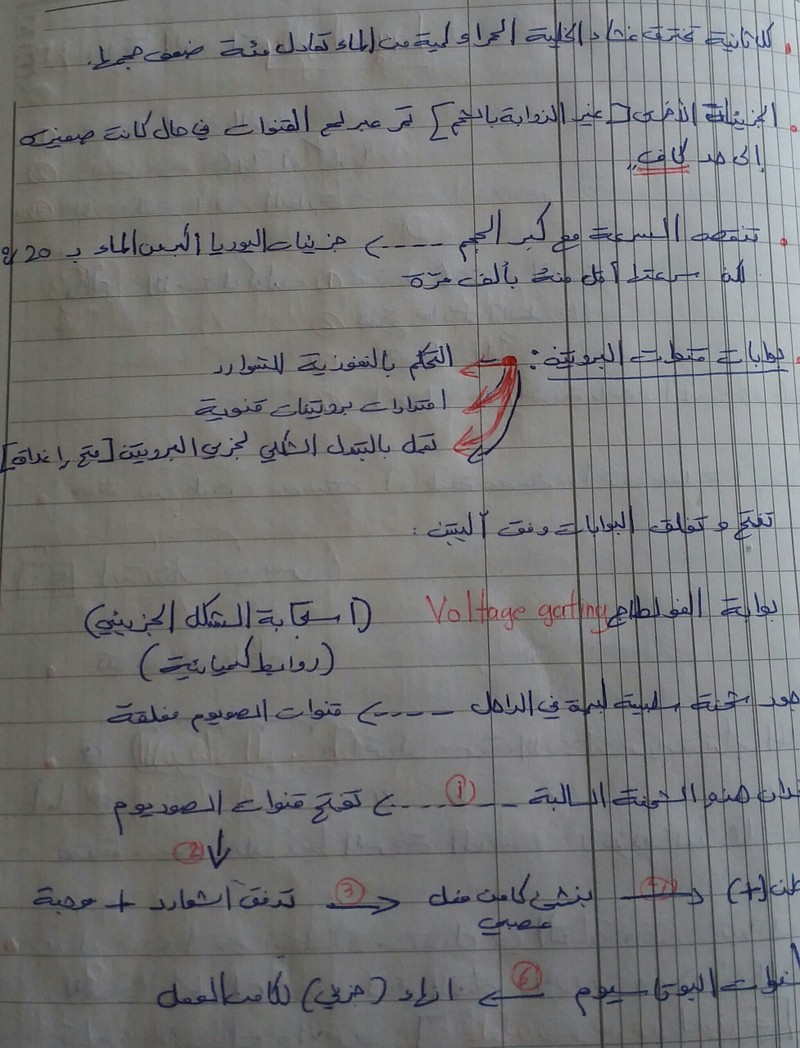 كل ثانية تخترق غشاء الخلية الحمراء كمية من الماء تعادل مئة ضعف حجمها.
الجزيئات الأخرى [غير الذوابة بالشحم] تمر عبر لمع القنوات في حال كانت صغيرة
إلى حد كافٍ
تنقص السرعة مع كبر الحجم ----> جزيئات اليوريا أكبر من الماء بـ 20%
لكن سرعتها أقل منه بألف مرة
بوابات قنوات البروتين: التحكم بالنفوذية للشوارد
امتدادات بروتينات قنوية
تعمل بالتبدل الشكلي لجزيء البروتين [فتح وإغلاق]
تفتح و تغلق البوابات وفق آليتين :
بوابة الفولطاج Voltage gating (استجابة الشكل الجزيئي)
(روابط كيميائية)
شحنة سلبية في الداخل ----> قنوات الصوديوم مغلقة
الشحنة السالبة ---①---> تفتح قنوات الصوديوم
②
(+) ينشئ كامن فعل ③ تدفق الشوارد + موجبة
عصبي
البوتاسيوم ⑥ انهاء (جزئي) لكامن العمل